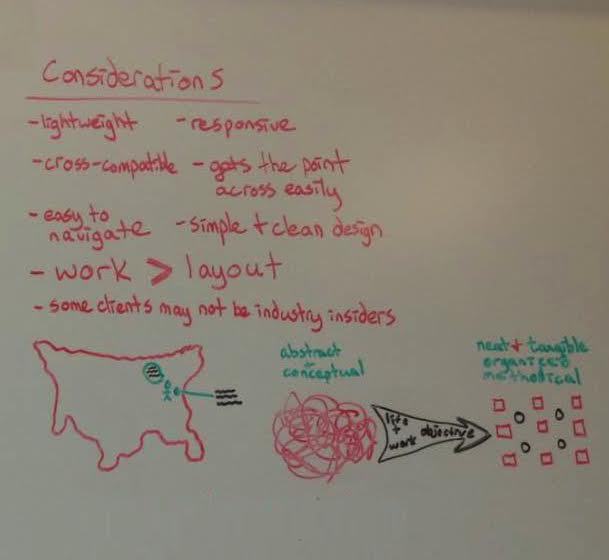 Considerations
-lightweight
-responsive
-cross-compatible
-gets the point
across easily
-easy to
navigate
-simple + clean design
- work > layout
- some clients may not be industry insiders
abstract
+
conceptual
neat + tangible
organized
methodical
life
+
work
objective